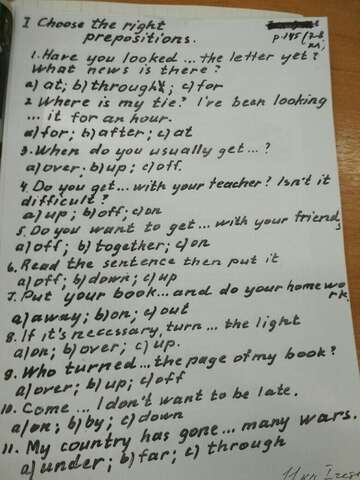 I Choose the right
prepositions.
p.145 (7-8
1. Have you looked ... the letter yet?
What news is there?
a) at; b) through; c) for
2. Where is my tie? I've been looking
... it for an hour.
a) for; b) after; c) at
3. When do you usually get ... ?
a) over; b) up; c) off.
4. Do you get ... with your teacher? Isn't it
difficult?
a) up; b) off; c) on
5. Do you want to get ... with your friends
a) off; b) together; c) on
6. Read the sentence then put it
a) off; b) down; c) up
7. Put your book ... and do your homework
a) away; b) on; c) out
8. If it's necessary, turn ... the light
a) on; b) over; c) up.
9. Who turned ... the page of my book?
a) over; b) up; c) off
10. Come ... I don't want to be late.
a) on; b) by; c) down
11. My country has gone ... many wars.
a) under; b) far; c) through